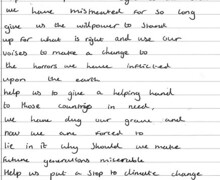 we have mistreated for so long
give us the willpower to stand
up for what is right and use our
voises to make a change to
the horrors we have inflicted
upon the earth
help us to give a helping hand
to those countrys in need,
we have dug our grave and
now we are forced to
lie in it why should we make
future generations miserable
Help us put a stop to climate change